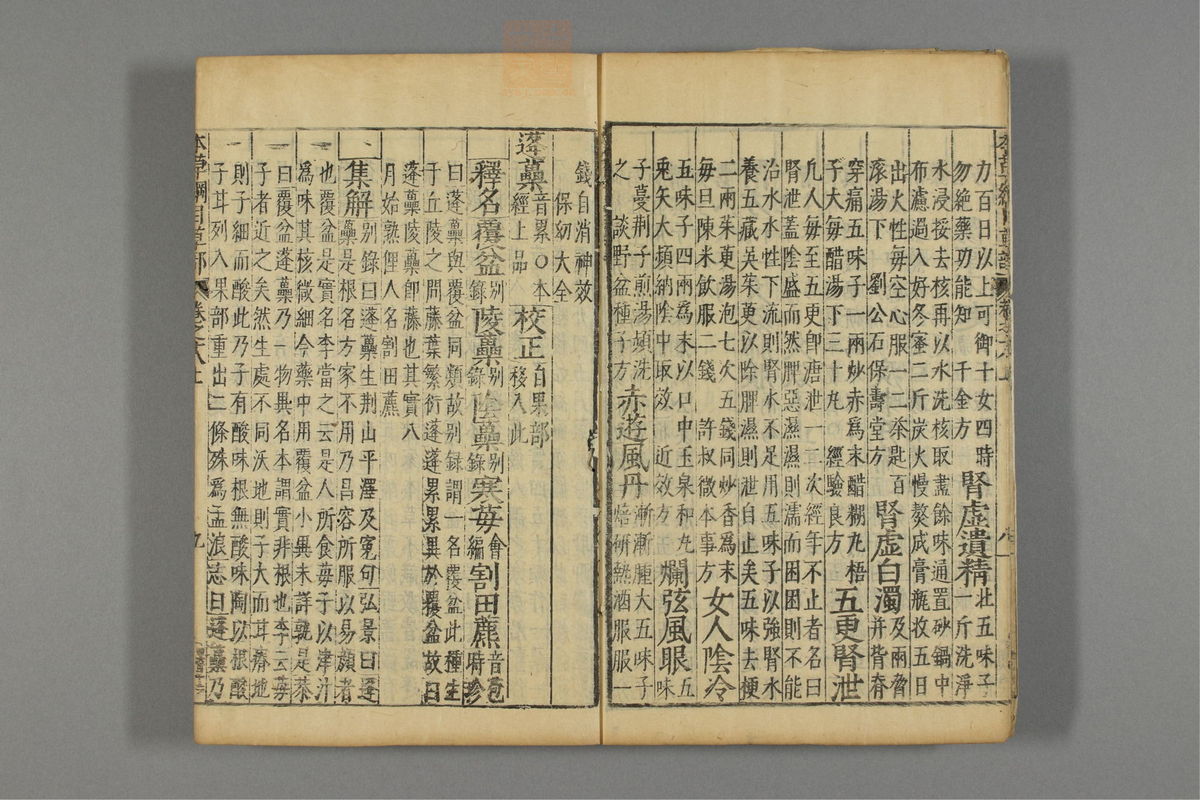 力百日以上可御十女四時
勿絶藥功能知 千金方
腎虛遺精 北五味子
一斤洗淨
水浸挼去核再以水洗核取盡餘味通置砂鍋中
布濾過入好冬蜜二斤炭火慢熬成膏瓶收五日
出火性每空心服一二茶匙百
滚湯下 劉公石保壽堂方
腎虛白濁 及兩脅
并背脊
穿痛五味子一兩炒赤爲末醋糊丸梧
子大每醋湯下三十丸 經驗良方
五更腎泄
凡人每至五更卽溏泄一二次經年不止者名曰
腎泄蓋陰盛而然脾惡濕濕則濡而困困則不能
治水水性下流則腎水不足用五味子以強腎水
養五藏吳茱萸以除脾濕則泄自止矣五味去梗
二兩茱萸湯泡七次五錢同炒香爲末
每旦陳米飲服二錢 許叔微本事方
女人陰冷
五味子四兩爲末以口中玉泉和丸
兔矢大頻納陰中取效 近效方
爛弦風眼 五味
子蔓荆子煎湯頻洗
之 談野翁種子方
赤遊風丹 漸漸腫大五味子
焙研熱酒服服一
本草綱目草部
錢自消神效
保幼大全
蓬蘽 音累〇本
經上品
校正 自果部
移入此
釋名覆盆 別録 陵蘽 別録 陰蘽 別録 寒莓 會編 割田藨 音苞時珍
曰蓬蘽與覆盆同類故别録謂一名覆盆此種生
于丘陵之間藤葉繁衍蓬蓬累累異於覆盆故曰
蓬蘽陵蘽卽藤也其實八
月始熟俚人名割田藨
集解 别錄曰蓬蘽生荆山平澤及寃句弘景曰蓬
蘽是根名方家不用乃昌容所服以易顔者
也覆盆是實名李當之云是人所食莓子以津汁
爲味其核微細今藥中用覆盆小異未詳孰是恭
曰覆盆蓬蘽乃一物異名本謂實非根也李云莓
子者近之矣然生處不同沃地則子大而甘瘠地
則子細而酸此乃子有酸味根無酸味陶以根酸
子甘列入果部重出二條殊爲孟浪志曰蓬蘽乃
本草綱目草部 卷之十八上 九